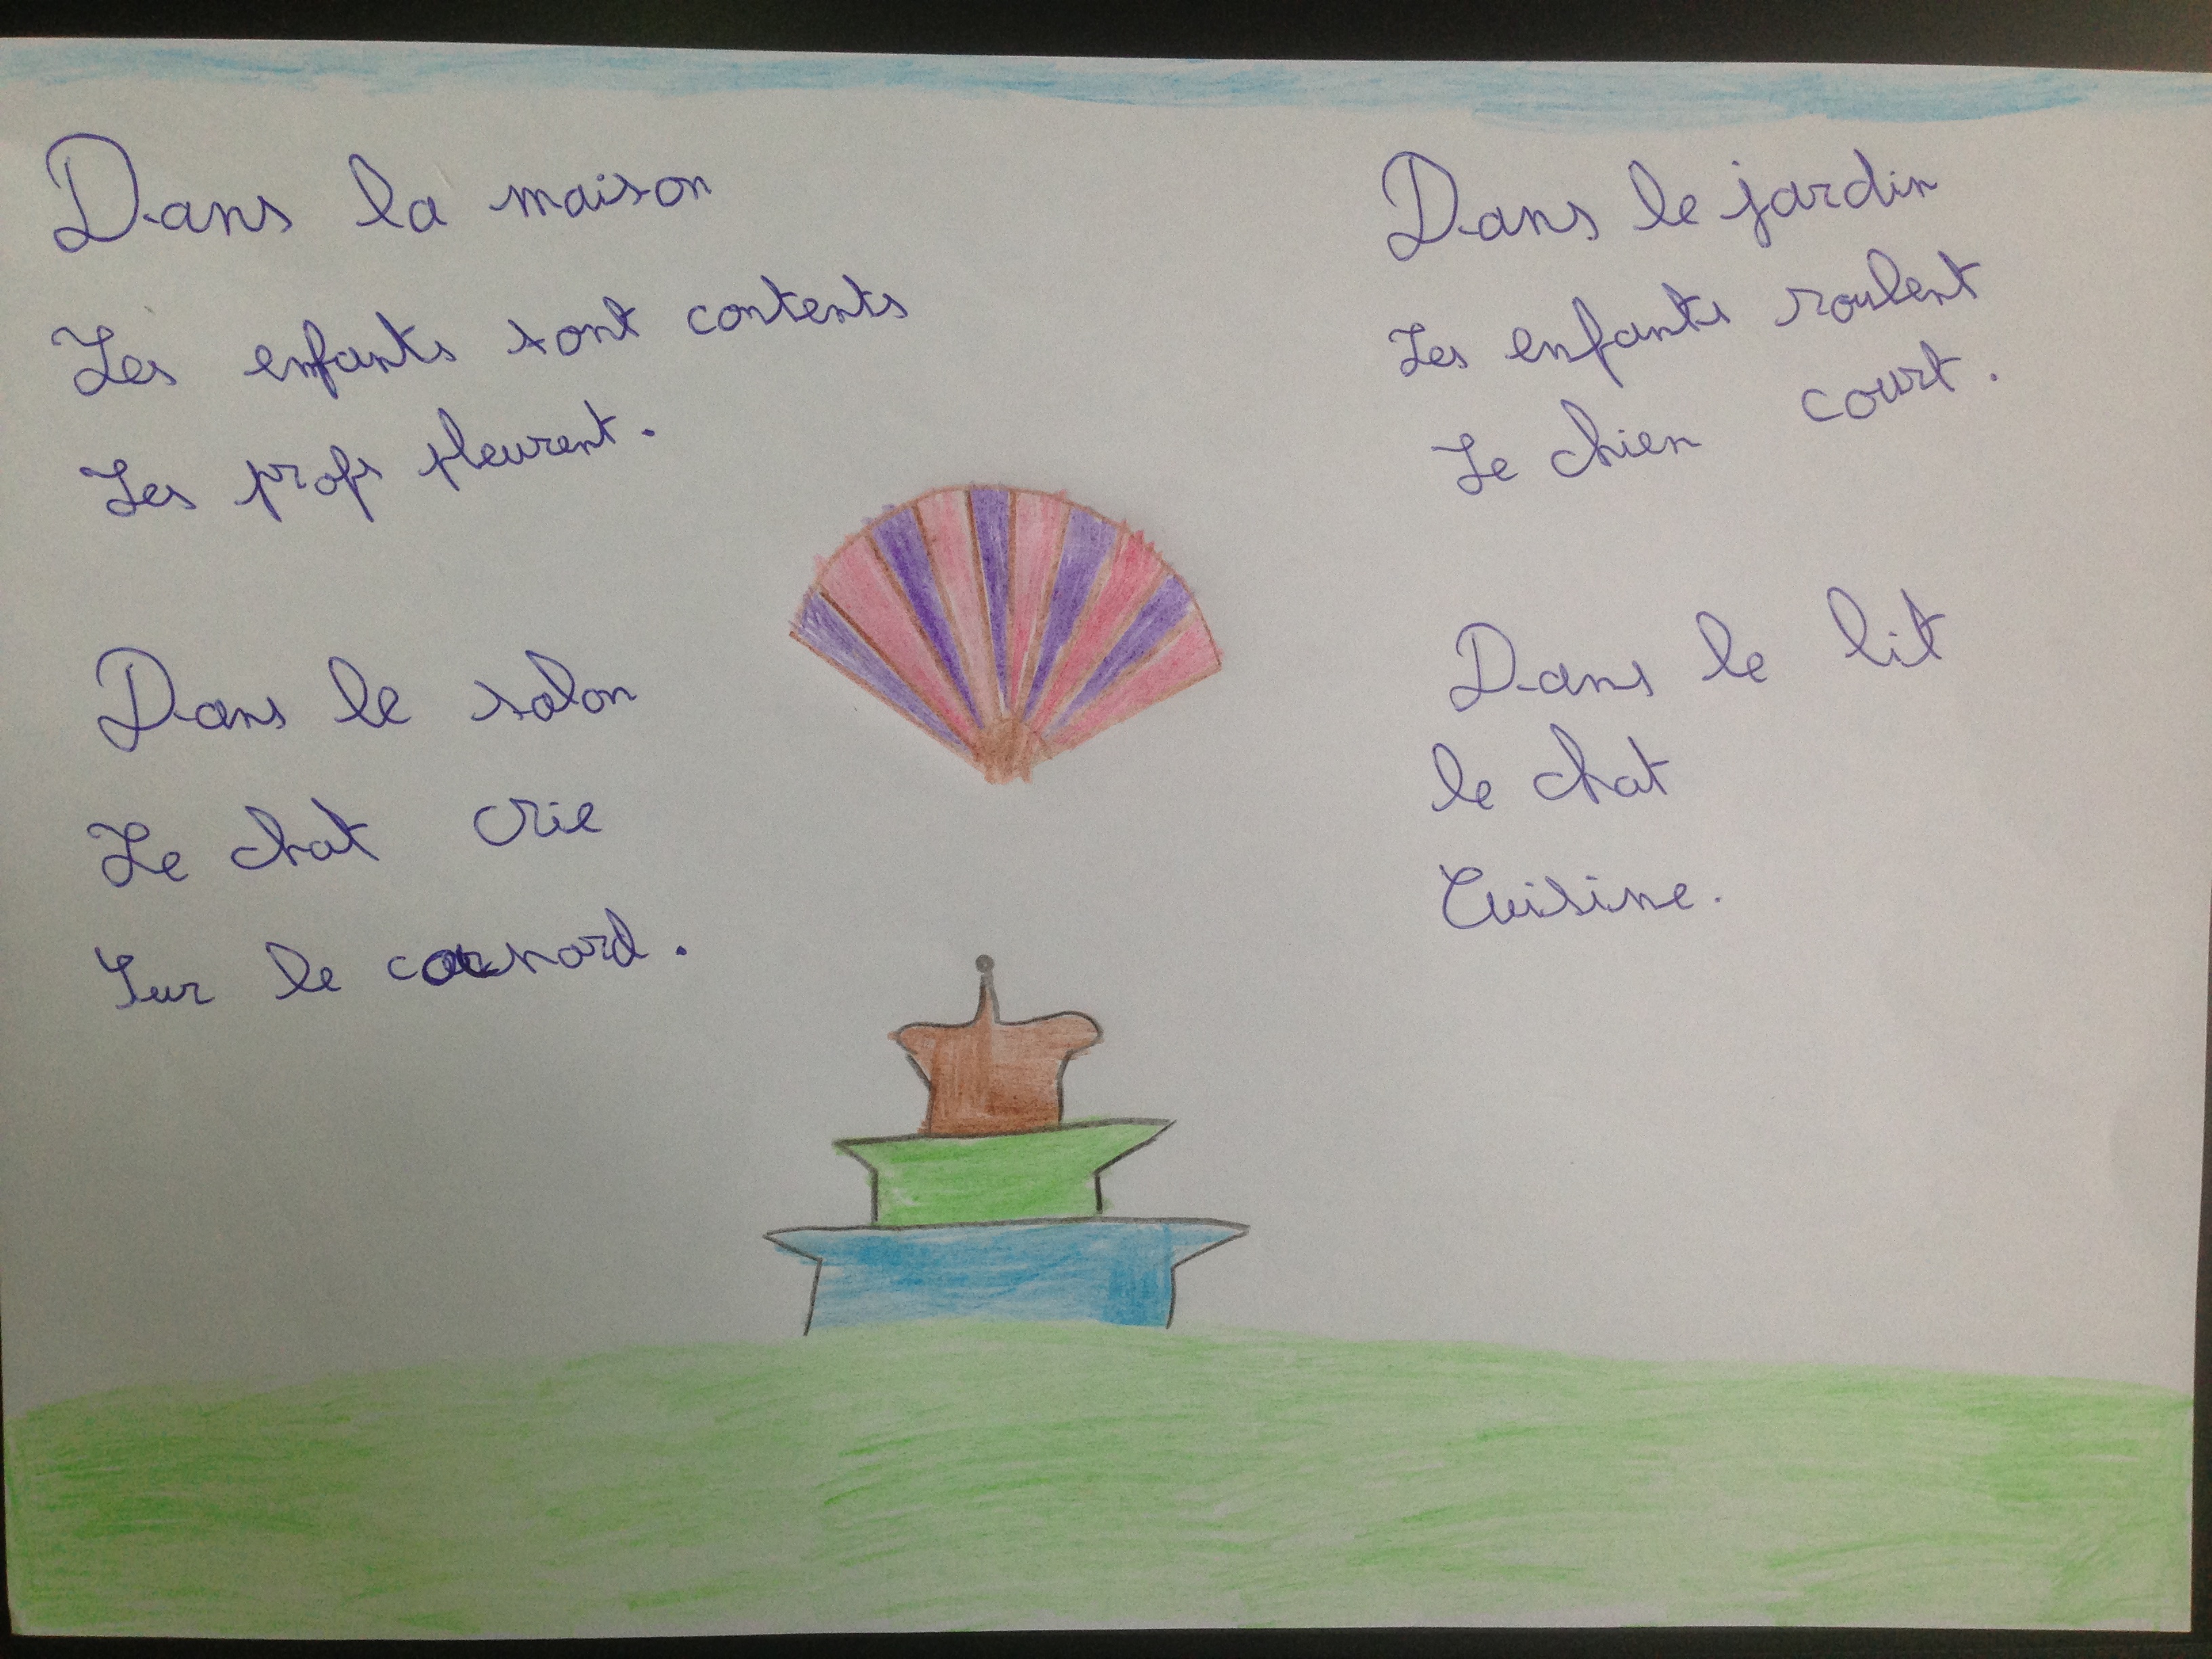 Dans la maison
Les enfants sont contents
Les profs pleurent.
Dans le salon
Le chat crie
Sur le canard.
Dans le jardin
Les enfants roulent
Le chien court.
Dans le lit
le chat
Cuisine.